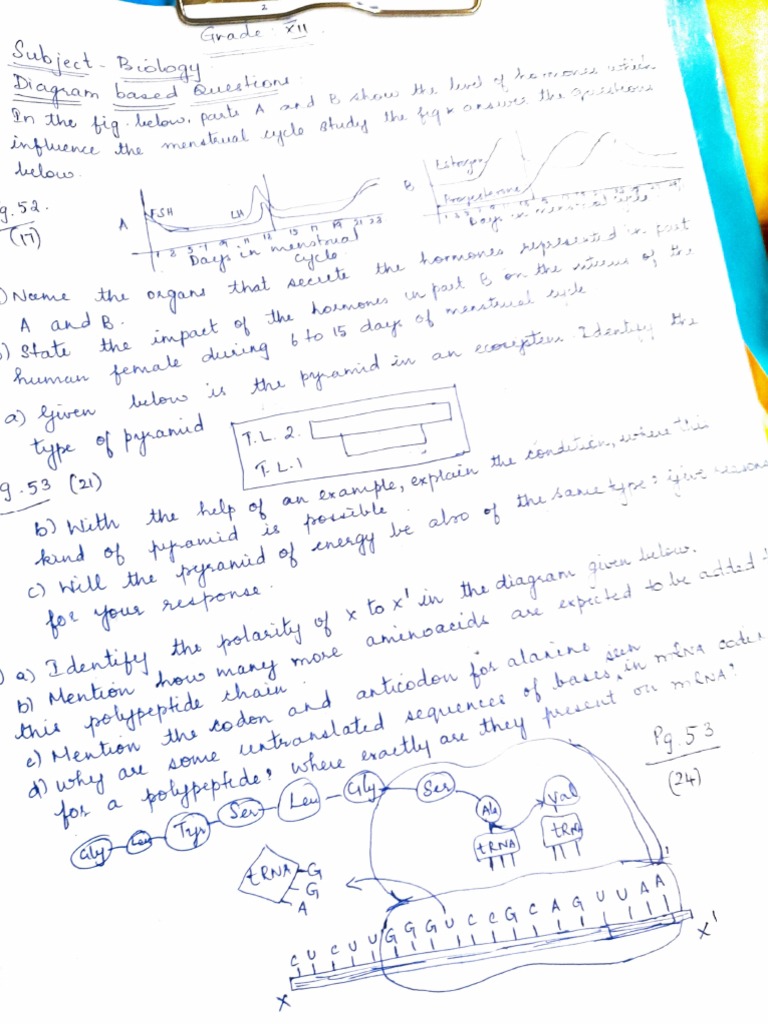 2
Grade XII
Subject - Biology
Diagram based Questions
In the fig. below, parts A and B show the level of hormones which
influence the menstrual cycle study the fig & answer the questions
below.
g. 52.
(17)
A
FSH
LH
Days in menstrual
cycle
B
Estrogen
Progesterone
Days in menstrual cycle
) Name the organs that secrete the hormones represented in part
A and B.
) State the impact of the hormones in part B on the uterus of the
human female during 6 to 15 days of menstrual cycle
a) Given below is the pyramid in an ecosystem. Identify the
type of pyramid
T.L. 2.
T.L. 1
g. 53 (21)
b) With the help of an example, explain the condition, where this
kind of pyramid is possible
c) Will the pyramid of energy be also of the same type? Give reasons
for your response.
a) Identify the polarity of x to x' in the diagram given below.
b) Mention how many more aminoacids are expected to be added
this polypeptide chain.
c) Mention the codon and anticodon for alanine
d) why are some untranslated sequences of bases seen in mRNA codes
for a polypeptide? where exactly are they present on mRNA?
Pg. 53
(24)
Gly
Leu
Tyr
Ser
Leu
Gly
Ser
Ala
Val
tRNA
tRNA
tRNA
G
G
A
C U C U U G G G U C C G C A G U U A A
X
X'